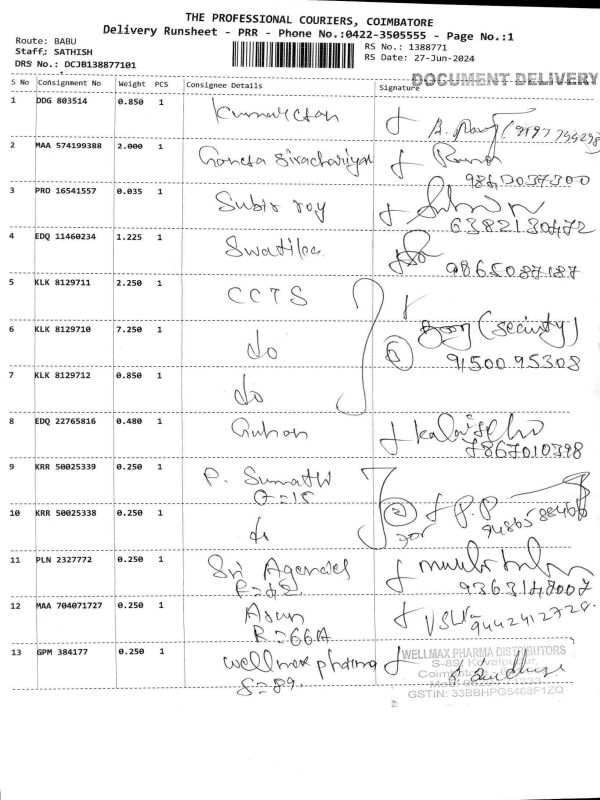 THE PROFESSIONAL COURIERS, COIMBATORE
Delivery Runsheet - PRR - Phone No.:0422-3505555 - Page No.:1
Route: BABU
Staff: SATHISH
DRS No.: DCJB138877101
RS No.: 1388771
RS Date: 27-Jun-2024
DOCUMENT DELIVERY
S No Consignment No Weight PCS Consignee Details Signature
1 DDG 803514 0.850 1
2 MAA 574199388 2.000 1 Ganesa Sivachariyar
9843037300
3 PRO 16541557 0.035 1 Subir roy
6382130472
4 EDQ 11460234 1.225 1 Swatika
9865087187
5 KLK 8129711 2.250 1 CCTS
6 KLK 8129710 7.250 1 do (security)
9150095308
7 KLK 8129712 0.850 1 do
8 EDQ 22765816 0.480 1 Guhan
7867010398
9 KRR 50025339 0.250 1 P. Sumathi
10 KRR 50025338 0.250 1 do 2 P.P
11 PLN 2327772 0.250 1 Sri Agencies
F=42 9363147007
12 MAA 704071727 0.250 1 Arun
R=66A 9442412728
13 GPM 384177 0.250 1 wellmax pharma
S=89.
WELLMAX PHARMA DISTRIBUTORS
S-89, Kovaipudur,
GSTIN: 33BBHPG5463F1ZQ